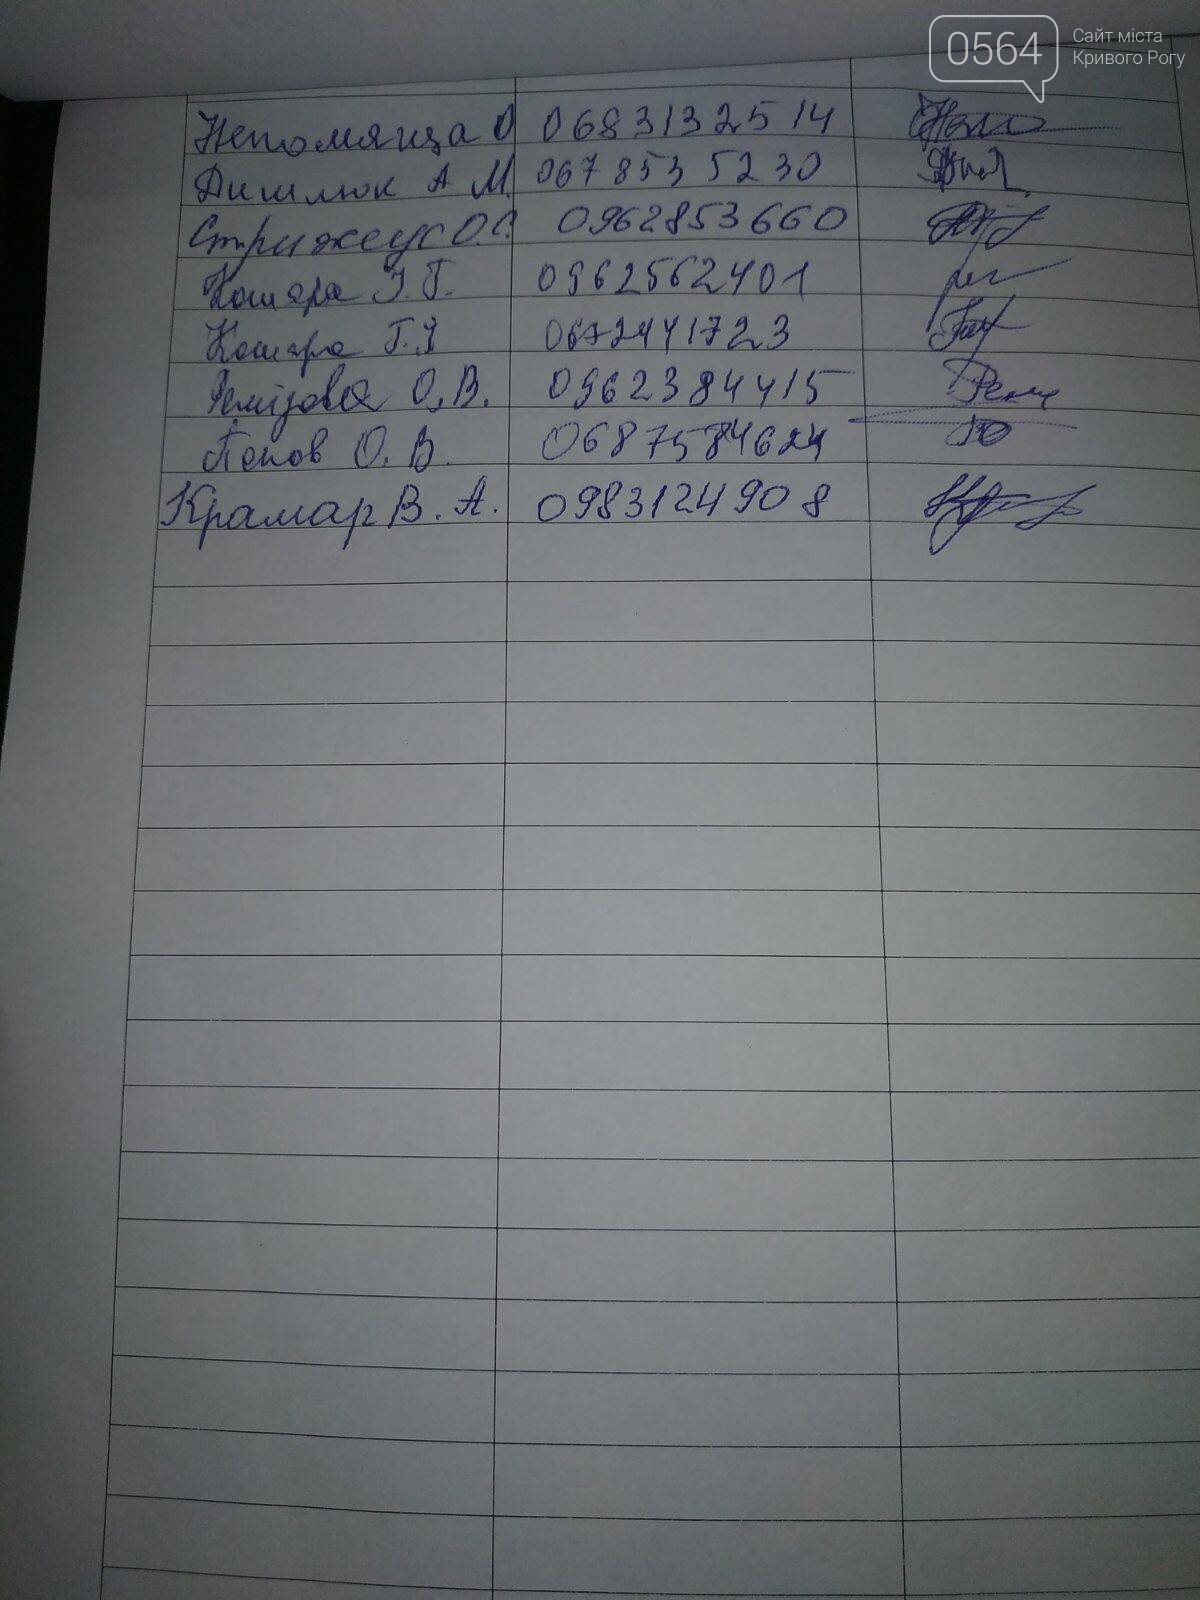 0564 Сайт міста
Кривого Рогу
Непомяща О 0683132514
Дишлюк А М. 067 853 5230
Стрижеус О.С. 0962853660
Кошара І.Г. 0962562401
Кошара Г.І 0672441723
Ремізова О.В. 0962384415
Попов О.В. 0687584624
Крамар В.А. 0983124908